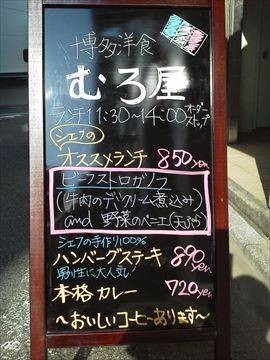 博多洋食
むろ屋
ランチ11:30~14:00オーダーストップ
シェフの
オススメランチ 850yen
ビーフストロガノフ
(牛肉のデミクリーム煮込み)
and 野菜のベーエ(天ぷら)
シェフの手作り100%
ハンバーグステーキ 890yen
男性に大人気!
本格カレー 720yen
～おいしいコーヒーあります～